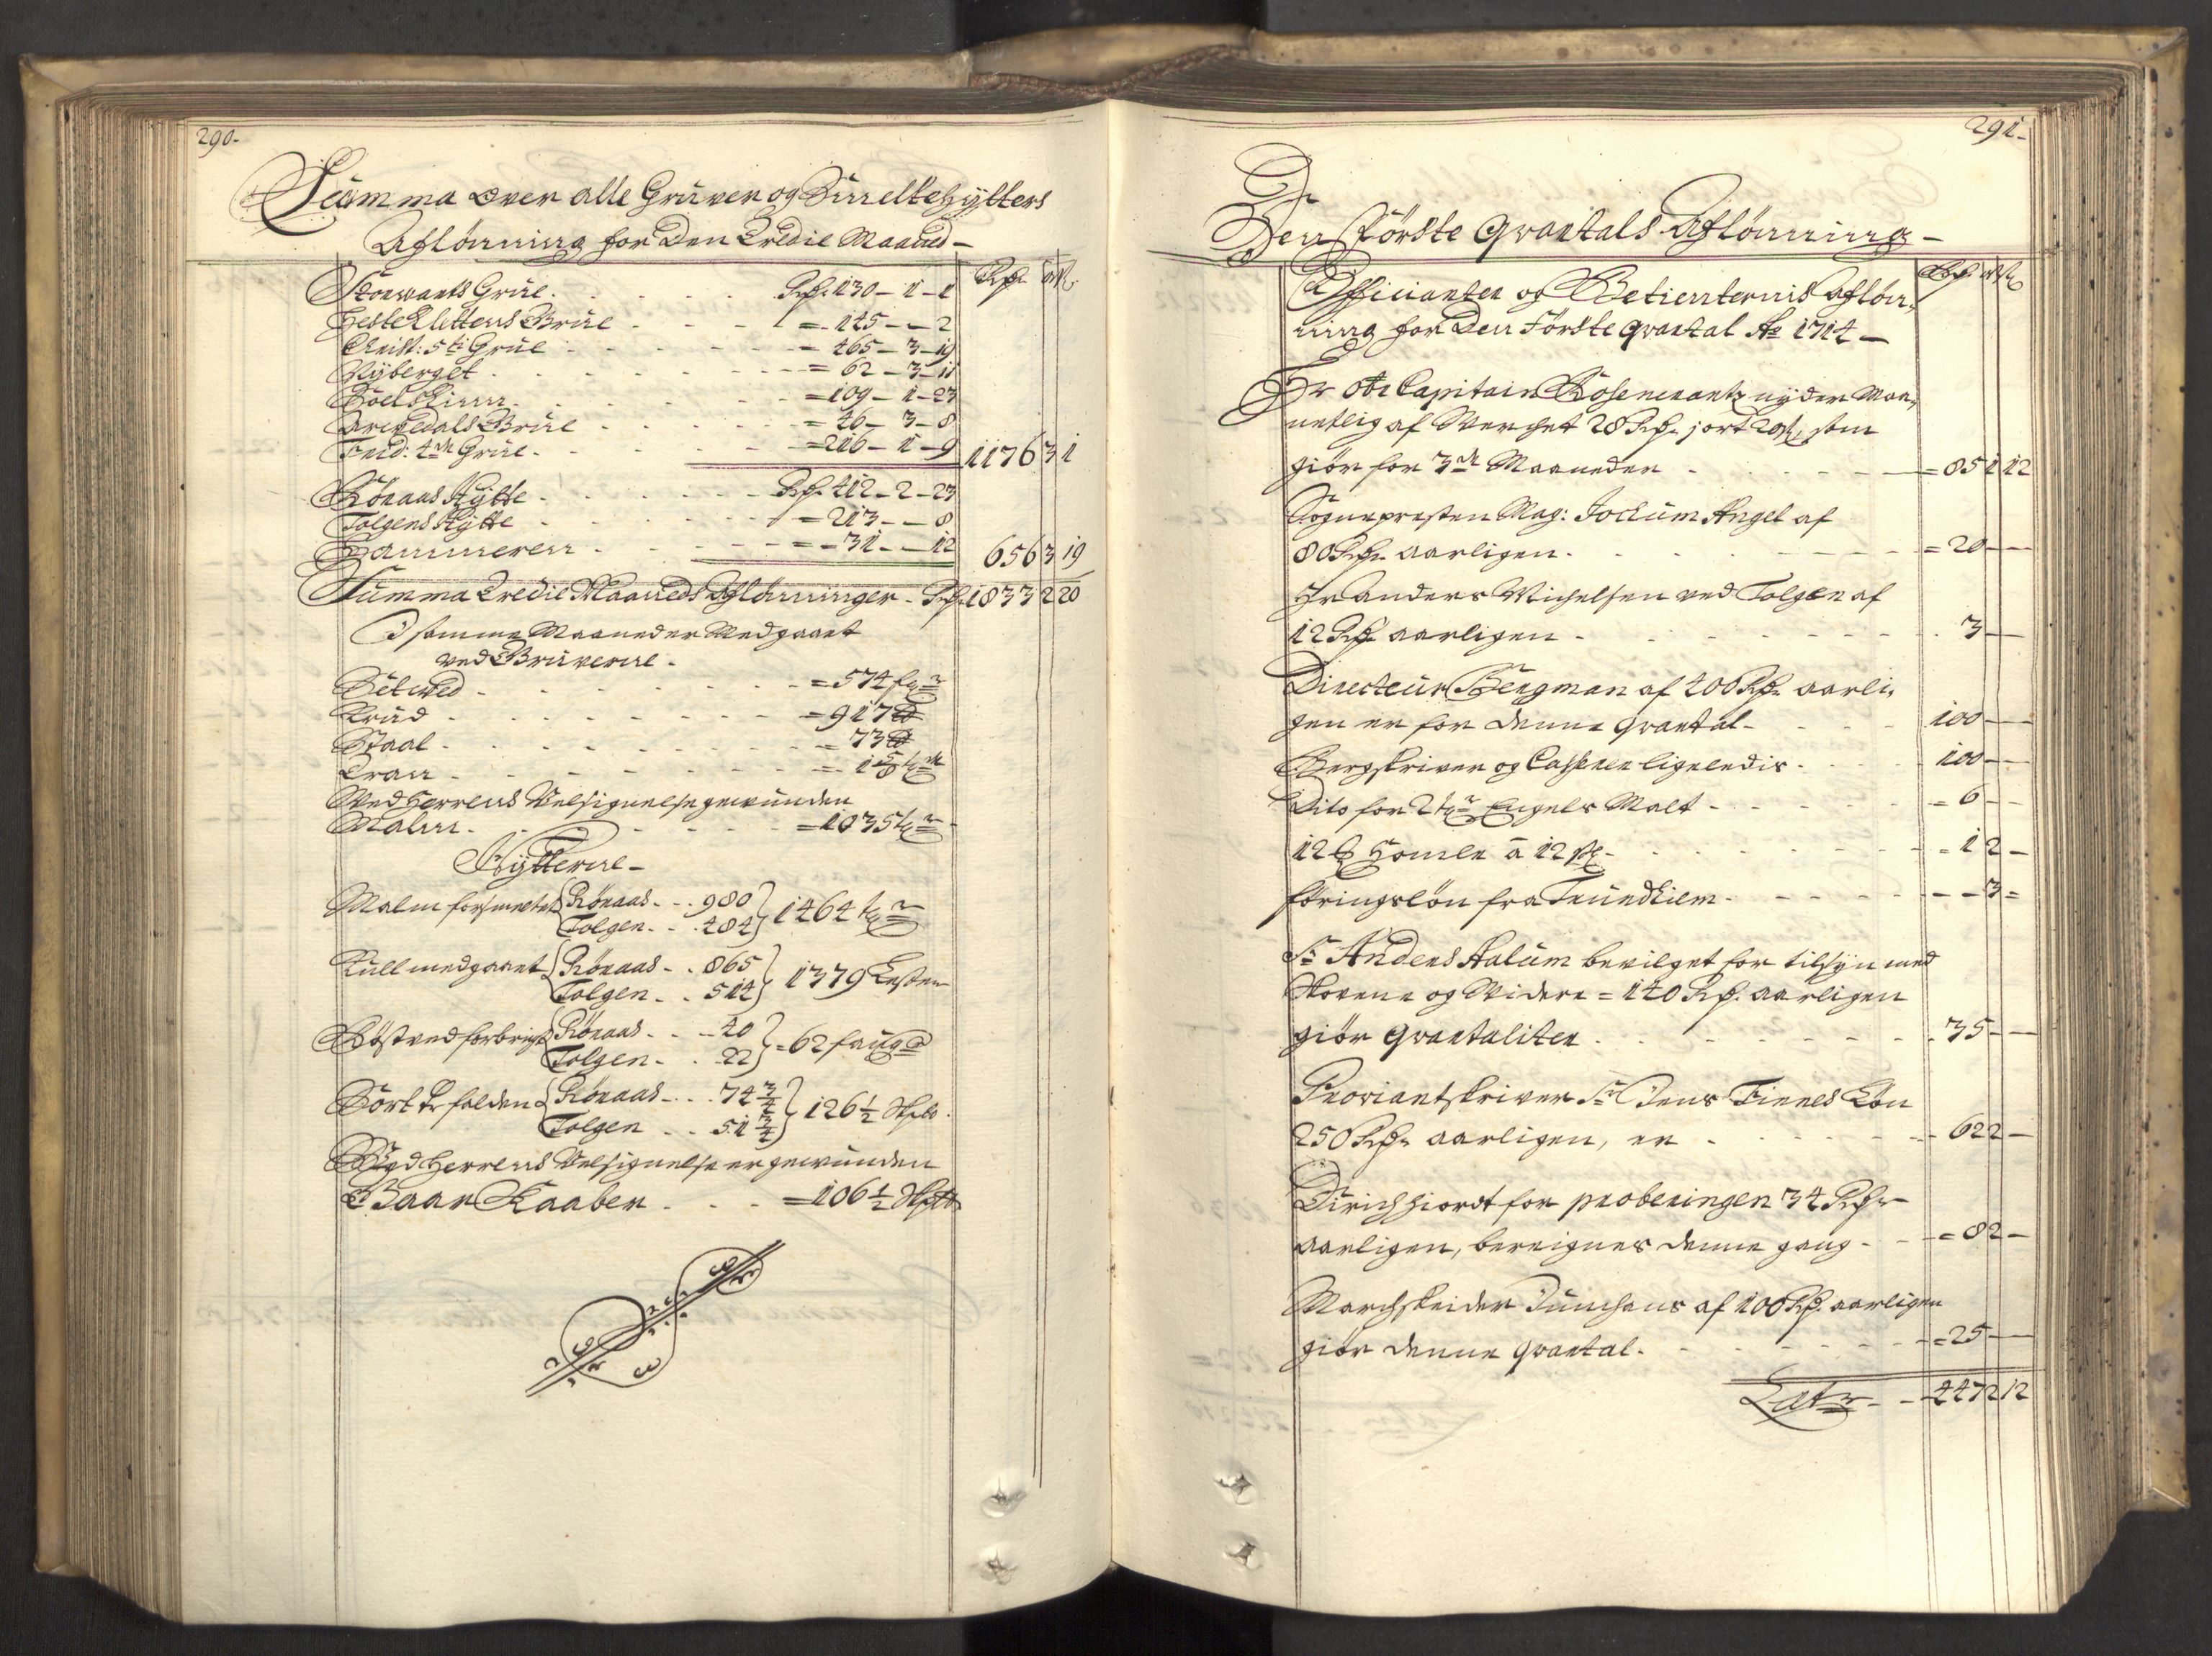 290.
Summa over alle Gruver og Smeltehytters
Aflönning for den tredie Maaned -
Rdr. Mk.
Storwarts Grue . . . Rdr. 130 - 1 - 1
HesteKlettens Grue . . . = 145 - - 2
Christ: 5ti Grue . . . = 465 - 3 - 19
Nÿberget . . . = 62 - 3 - 11
. . . = 109 - 1 - 23
Arvedals Grue . . . = 46 - 3 - 8
Frid: 4de Grue . . . = 216 - 1 - 9 1176 3 1
Röraas Hÿtte . . . Rdr. 412 - 2 - 23
Tolgens Hÿtte . . . = 213 - - 8
Hammeren . . . = 31 - - 12 656 3 19
Summa tredie Maaneds Aflönninger - Rdr. 1833 2 20
I samme Maaneder Medgaaet
ved Gruverne -
Setved . . . = 574 fr
Krud . . . = 917 ℔
Staal . . . = 73 ℔
Tran . . . = 1 5/8 tr
Med Herrens Velsignelse gewunden
Malm . . . = 1035 tr
Hÿtterne -
Malm forsmeltet { Röraas . . 980
Tolgen . . 484 } 1464 tr
Kull medgaaet { Röraas . . 865
Tolgen . . 514 } 1379 Lester
Röstved forbrugt { Röraas . . 40
Tolgen . . 22 } = 62 faug
Sort Kr falden { Röraas . . 74 3/4
Tolgen . . 51 3/4 } 126 1/2 Skpd.
Wed Herrens Velsignelse er gewunden
Gaar Kaaber . . . = 106 1/2 Skpd
291.
Den Förste Qvartals Aflönning -
Rdr. Mk
Officianter og Betienternis Aflön¬
ning for den Förste Qvartal Ao 1714 -
Hr Obr Capitain Rosencrantz nÿder Maa¬
netlig af Werchet 28 Rdr. 1 ort 20 s, som
giör for 3de Maaneder . . . = 85 1 12
Sognepresten Mag: Jochum Angel af
80 Rdr. aarligen . . . = 20 - -
Hr Anders Michelsen ved Tolgen af
12 Rdr aarligen . . . 3 -
Directeur Bergman af 400 Rdr. aarli¬
gen er for denne Qvartal - 100 -
Bergskriver og Casserer ligeledis . . . 100 -
Dito for 2 tr Engels Malt . . . = 6 - -
12 ℔ Homle a 12 s . . . = 1 2 -
föringslön fra Trundhiem . . . - 3 =
Sr Anders Aalum bevilget for tilsÿn med
Skovene og Widere = 140 Rdr. aarligen
giör Qvartaliter . . . 35 - -
Proviantskriver Sr Jens Finnes Lön
250 Rdr. aarligen, er . . . 62 2 -
Dirich Hiordt for proberingen 34 Rdr.
aarligen, bereignes denne gang . . . = 8 2 -
Marchskeider Junghans af 100 Rdr. aarligen
giör denne Qvartal . . . = 25 -
Latr . . 447 2 12